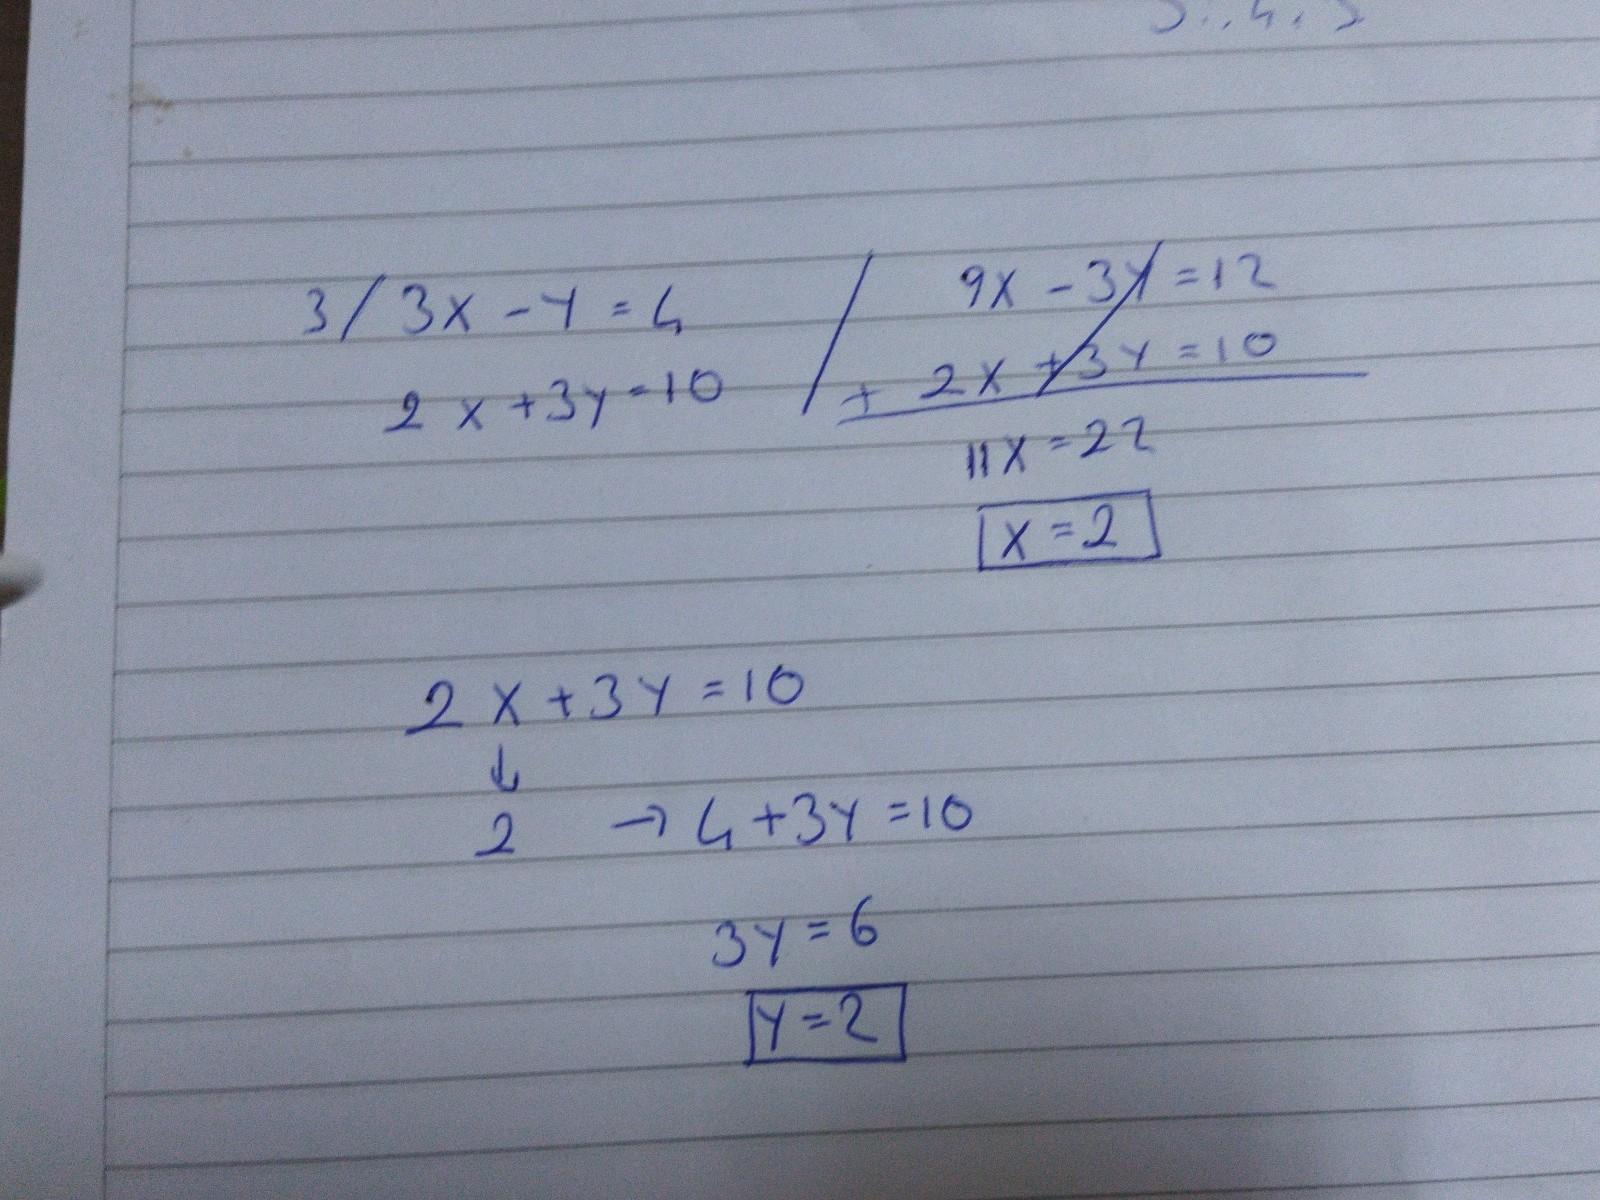 3/ 3x - y = 4
2x + 3y = 10
/
9x - 3y = 12
+ 2x + 3y = 10
11x = 22
x = 2
2x + 3y = 10
↓
2 → 4 + 3y = 10
3y = 6
y = 2